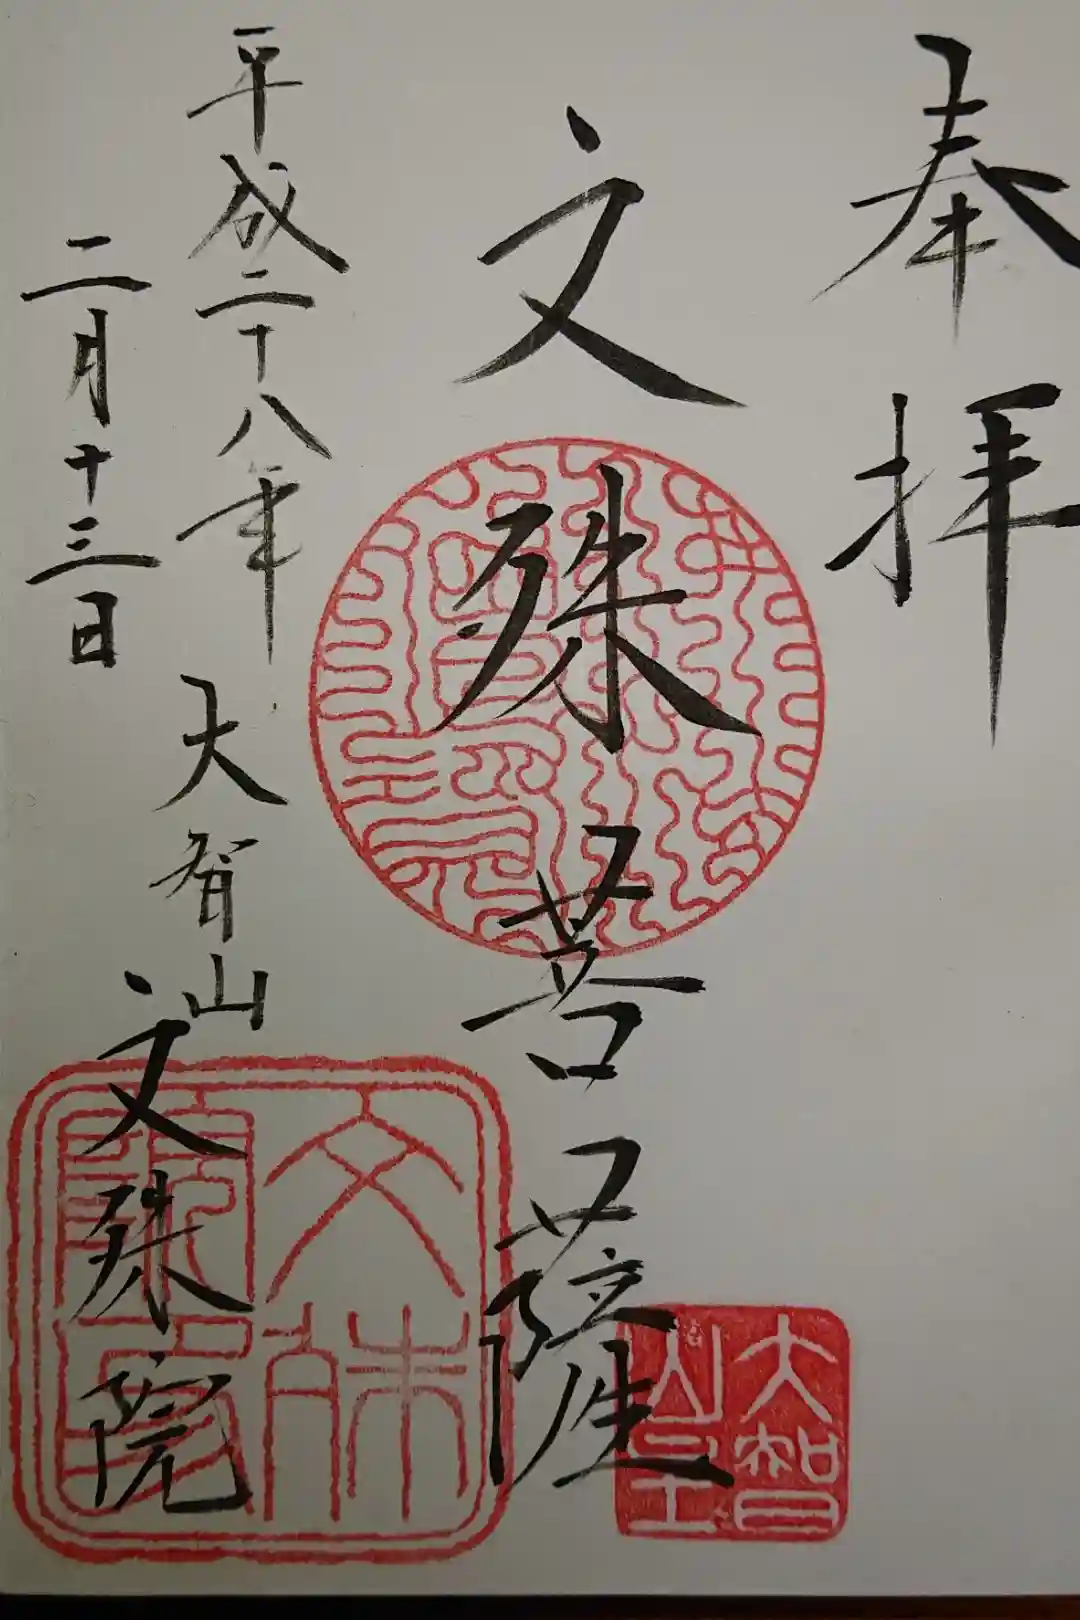 奉拝
文殊菩薩
平成二十八年
二月十三日
大智山
文殊院
文殊
大智
山